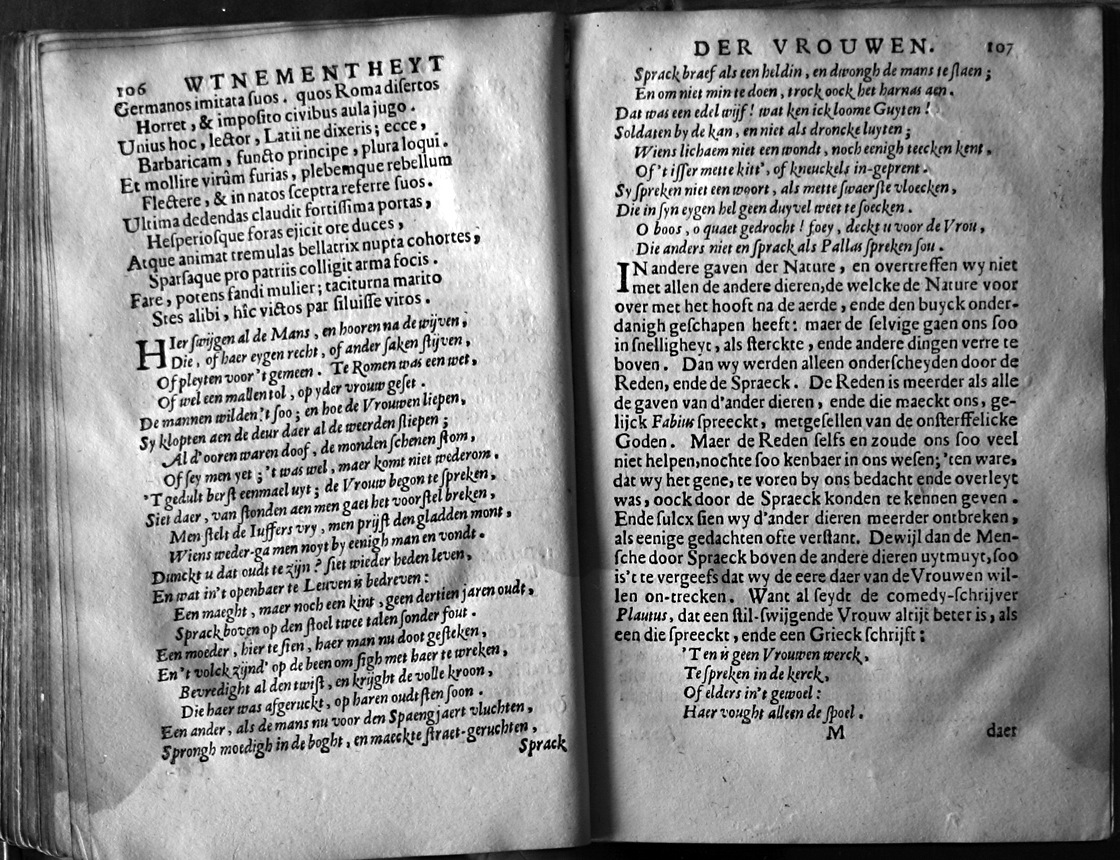 106 WTNEMENTHEYT
Germanos imitata ſuos. quos Roma diſertos
Horret, & impoſito civibus aula jugo.
Unius hoc, lector, Latii ne dixeris; ecce,
Barbaricam, functo principe, plura loqui.
Et mollire virûm furias, plebemque rebellum
Flectere, & in natos ſceptra referre ſuos.
Ultima dedendas claudit fortiſſima portas,
Heſperioſque foras ejicit ore duces,
Atque animat tremulas bellatrix nupta cohortes;
Sparſaque pro patriis colligit arma focis.
Fare, potens fandi mulier; taciturna marito
Stes alibi, hîc victos par ſiluiſſe viros.
HIer ſwijgen al de Mans, en hooren na de wijven;
Die, of haer eygen recht, of ander ſaken ſtijven,
Of pleyten voor 't gemeen. Te Romen was een wet,
Of wel een mallen tol, op yder vrouw geſet.
De mannen wilden't ſoo; en hoe de Vrouwen liepen,
Sy klopten aen de deur daer al de weerden ſliepen;
Al d'ooren waren doof, de monden ſchenen ſtom,
Of ſey men yet; 't was wel, maer komt niet wederom.
'T gedult berſt eenmael uyt; de Vrouw begon te ſpreken,
Siet daer, van ſtonden aen men gaet het voorſtel breken,
Men ſtelt de Iuffers vry, men prijſt den gladden mont,
Wiens weder-ga men noyt by eenigh man en vondt.
Dunckt u dat oudt te zijn? ſiet wieder heden leven,
En wat in't openbaer te Leuven is bedreven:
Een maeght, maer noch een kint, geen dertien jaren oudt,
Sprack boven op den ſtoel twee talen ſonder fout.
Een moeder, hier te ſien, haer man nu doot geſteken,
En 't volck zijnd' op de been om ſigh met haer te wreken,
Bevredight al den twiſt, en krijght de volle kroon,
Die haer was afgeruckt, op haren oudtſten ſoon.
Een ander, als de mans nu voor den Spaengjaert vluchten,
Sprongh moedigh in de boght, en maeckte ſtraet-geruchten,
Sprack
DER VROUWEN. 107
Sprack braef als een heldin, en dwongh de mans te ſlaen;
En om niet min te doen, trock oock het harnas aen.
Dat was een edel wijf! wat ken ick loome Guyten!
Soldaten by de kan, en niet als droncke luyten;
Wiens lichaem niet een wondt, noch eenigh teecken kent,
Of 't iſſer mette kitt', of kneuckels in-geprent.
Sy ſpreken niet een woort, als mette ſwaerſte vloecken,
Die in ſyn eygen hel geen duyvel weet te ſoecken.
O boos, o quaet gedrocht! foey, deckt u voor de Vrou,
Die anders niet en ſprack als Pallas ſpreken ſou.
IN andere gaven der Nature, en overtreffen wy niet
met allen de andere dieren, de welcke de Nature voor
over met het hooft na de aerde, ende den buyck onder-
danigh geſchapen heeft: maer de ſelvige gaen ons ſoo
in ſnelligheyt, als ſterckte, ende andere dingen verre te
boven. Dan wy werden alleen onderſcheyden door de
Reden, ende de Spraeck. De Reden is meerder als alle
de gaven van d'ander dieren, ende die maeckt ons, ge-
lijck Fabius ſpreeckt, metgeſellen van de onſterffelicke
Goden. Maer de Reden ſelfs en zoude ons ſoo veel
niet helpen, nochte ſoo kenbaer in ons weſen; 'ten ware,
dat wy het gene, te voren by ons bedacht ende overleyt
was, oock door de Spraeck konden te kennen geven.
Ende ſulcx ſien wy d'ander dieren meerder ontbreken,
als eenige gedachten ofte verſtant. Dewijl dan de Men-
ſche door Spraeck boven de andere dieren uytmuyt, ſoo
is't te vergeefs dat wy de eere daer van de Vrouwen wil-
len on-trecken. Want al ſeydt de comedy-ſchrijver
Plautus, dat een ſtil-ſwijgende Vrouw altijt beter is, als
een die ſpreeckt, ende een Grieck ſchrijft:
'Ten is geen Vrouwen werck,
Te ſpreken in de kerck,
Of elders in't gewoel:
Haer vought alleen de ſpoel.
M daer